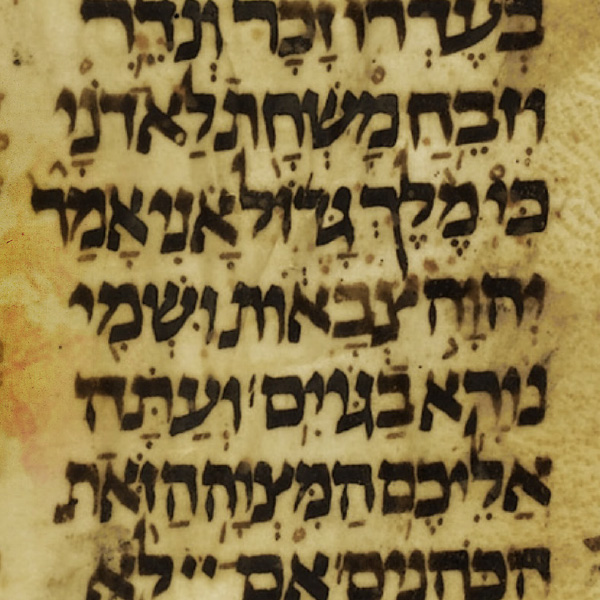 בְּעֶדְרוֹ זָכָר וְנֹדֵר
וְזֹבֵחַ מָשְׁחָת לַאדֹנָי
כִּי מֶלֶךְ גָּדוֹל אָנִי אָמַר
יְהוָה צְבָאוֹת וּשְׁמִי
נוֹרָא בַגּוֹיִם וְעַתָּה
אֲלֵיכֶם הַמִּצְוָה הַזֹּאת
הַכֹּהֲנִים אִם לֹא